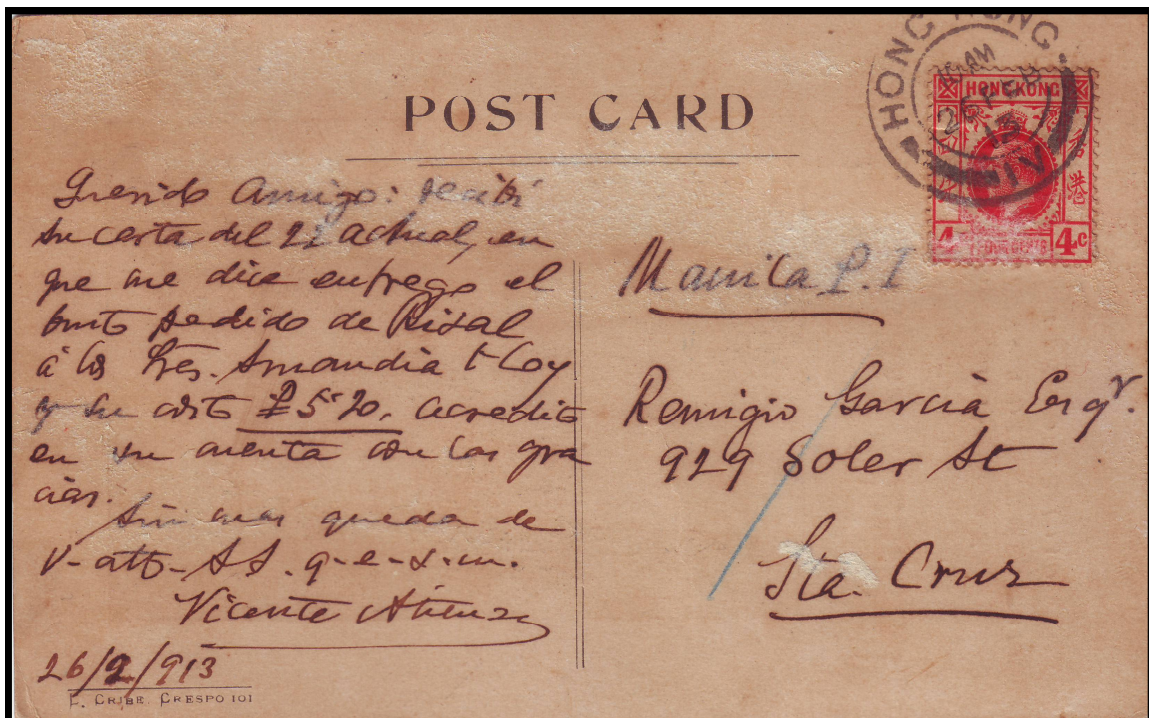 POST CARD
HONG KONG
10 AM
26 FEB
13
HONGKONG
香港
4
FOUR CENTS
4c
Querido Amigo: recibi
su carta del 22 actual, en
que me dice entrege el
busto pedido de Risal
á los Sres. Amandia & Coy
y su costo ₱5 20. acredito
en su cuenta con las gra
cias.
Sin mas queda de
V- atto- S S. q-e-s-m.
Vicente Atienza
26/2/913
Manila P. I
Remigio Garcia Esqr.
929 Soler St
Sta. Cruz
CRESPO 101